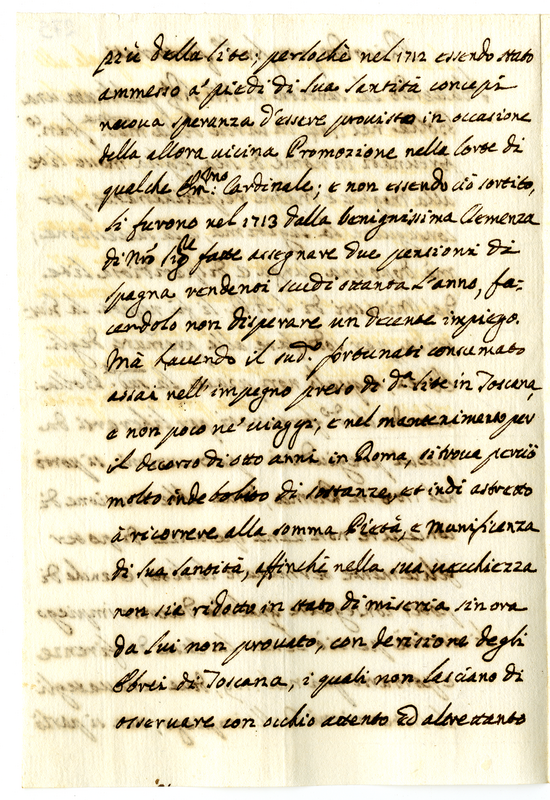 più della lite; perlochè nel 1712 essendo stato
ammesso a' piedi di Sua Santità concepì
nuova speranza d'essere provisto in occasione
della allora vicina Promozione nella Corte di
qualche Em:mo Cardinale; e non essendo ciò sortito,
li furono nel 1713 dalla benignissima Clemenza
di Nro Sigre fatte assegnare due pensioni di
spagna rendenoi scudi ottanta l'anno, fa-
cendolo non disperare un decente impiego.
Mà havendo il sud.o fortunati consumato
assai nell'impegno preso di d.a lite in Toscana,
e non poco ne' viaggi, e nel mantenimento per
il decorso di otto anni in Roma, si trova perciò
molto indebolito di sostanze, et indi astretto
à ricorrere alla somma Pietà, e Munificenza
di Sua Santità, affinchè nella sua vecchiezza
non sia ridotto in stato di miseria sin ora
da lui non provato, con derisione degli
Ebrei di Toscana, i quali non lasciano di
osservare con occhio attento ed altrettanto